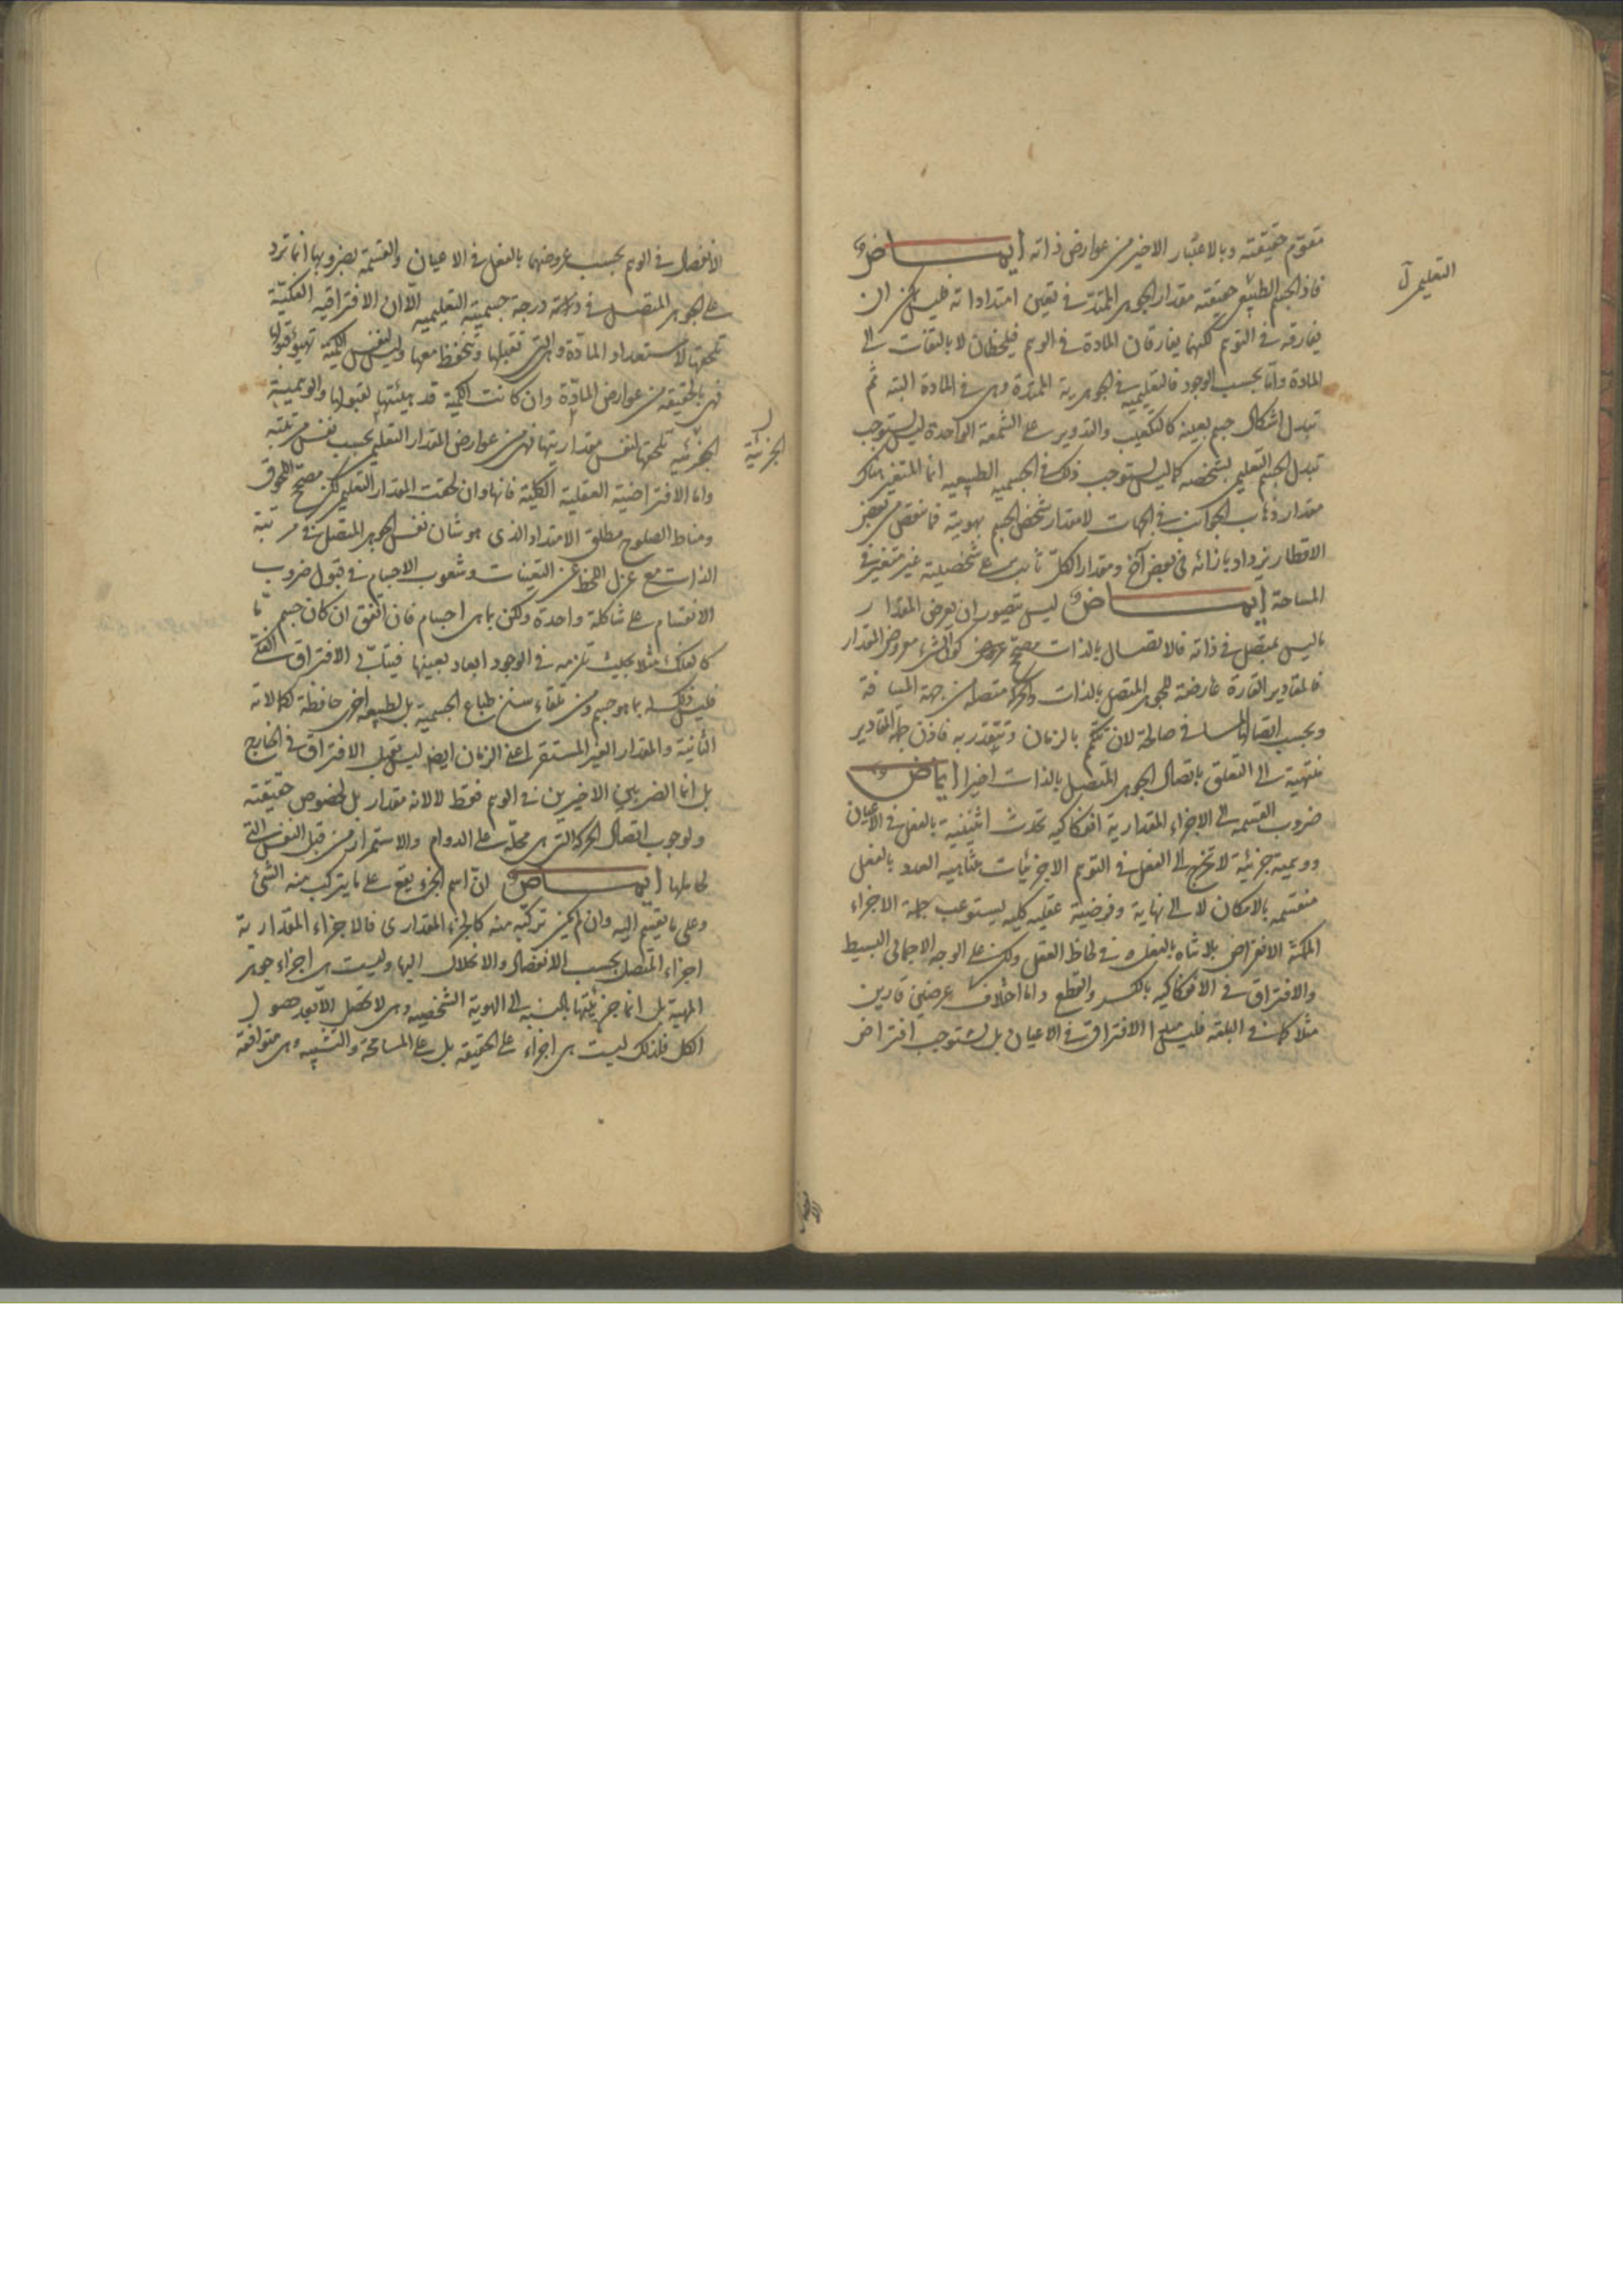 متقوم حقيقته وبالاعتبار الاخير من عوارض ذاته ايماض
فاذ الجسم الطبيعي حقيقته مقدار الجوهر الممتد في تعين امتداداته فليس يمكن ان
يفارقه في التوهم لكنهما يفارقان المادة في الوهم فيلحظان لا بالتفات الى
المادة واما بحسب الوجود فالتعليمية في الجوهرية الممتدة وهي في المادة البتة ثم
تبدل اشكال جسم بعينه كالتكعيب والتدوير على الشمعة الواحدة ليس يستوجب
تبدل الجسم التعليمي بشخصه كما ليس يستوجب ذلك في الجسمية الطبيعية انما المتغير هناك
مقدار ذهاب الجوانب في الجهات لا مقدار شخص الجسم بهويته فما ينقص من بعض
الاقطار يزداد بازائه في بعض آخر ومقدار الكل على شخصيته غير متغير في
المساحة ايماض ليس يتصور ان يعرض المقدار
ما ليس بمتصل في ذاته فالاتصال بالذات مصحح عروض كون الشيء معروض المقدار
فالمقادير القارة عارضة للجوهر المتصل بالذات والحركة متصلة من جهة المسافة
وبحسب اتصال المسافة صالحة لان تتكمم بالزمان وتتقدر به فاذن جملة المقادير
منتهية الى التعلق باتصال الجوهر المتصل بالذات اخيرا ايماض
ضروب القسمة الى الاجزاء المقدارية انفكاكية تحدث اثنينية بالفعل في الاعيان
ووهمية جزئية لا تخرج الى الفعل في التوهم الا جزئيات متناهية العدد بالفعل
منقسمة بالامكان لا الى نهاية وفرضية عقلية كلية يستوعب جملة الاجزاء
الممكنة الانفراض بلا تناه بالفعل في لحاظ العقل ولكن على الوجه الاجمالي البسيط
والافتراق في الانفكاكية بالكسر والقطع واما اختلاف عرضين قارين
مثلا كما في البلقة فليس الافتراق في الاعيان بل يستوجب افتراض
التعليمي
الانفصال في الوهم بحسب عروضهما بالفعل في الاعيان والقسمة بضروبها انما ترد
على الجوهر المتصل في درجة جسميته التعليمية الا ان الافتراقية الفكية
تلحقها لاستعداد المادة وهي التي تقبلها وتنحفظ معها وليس لنفس الكمية تهيؤ قبولها
فهي بالحقيقة من عوارض المادة وان كانت الكمية قد هيئتها لقبولها والوهمية
الجزئية تلحقها لنفس مقداريتها فهي من عوارض المقدار التعليمي بحسب نفس مرتبته
واما الافتراضية العقلية الكلية فانها وان لحقت المقدار التعليمي لكن مصحح اللحوق
ومناط الصلوح مطلق الامتداد الذي هو شان نفس الجوهر المتصل في مرتبة
الذات مع عزل اللحظ عن التعينات وشعوب الاجسام في قبول ضروب
الانقسام على شاكلة واحدة ولكن بما هي اجسام فان اتفق ان كان جسم ما
كالفلك مثلا بحيث تلزمه في الوجود ابعاد بعينها فيتأبى الافتراق الفكي
فليس ذلك له بما هو جسم ومن تلقاء سنخ طباع الجسمية بل لطبيعة اخرى حافظة لكمالاته
الثانية والمقدار الغير المستقر اعني الزمان ايضا ليس يقبل الافتراق في الخارج
بل انما الضربين الاخيرين في الوهم فقط لا لانه مقدار بل لخصوص حقيقته
ولوجوب اتصال الحركة التي هي محله على الدوام والاستمرار من قبل النفس التي
لحاملها ايماض ان اسم الجزء يقع على ما يتركب منه الشئ
وعلى ما ينقسم اليه وان لم يكن تركبه منه كالجزء المقداري فالاجزاء المقدارية
اجزاء المتصل بحسب الانفصال والانحلال اليها وليست هي اجزاء جوهر
المهية بل انما جزئيتها بالنسبة الى الهوية الشخصية وهي لا تحصل الا بعد حصول
الكل فلذلك ليست هي اجزاء على الحقيقة بل على المسامحة والتشبيه وهي متوافقة
الجزئية